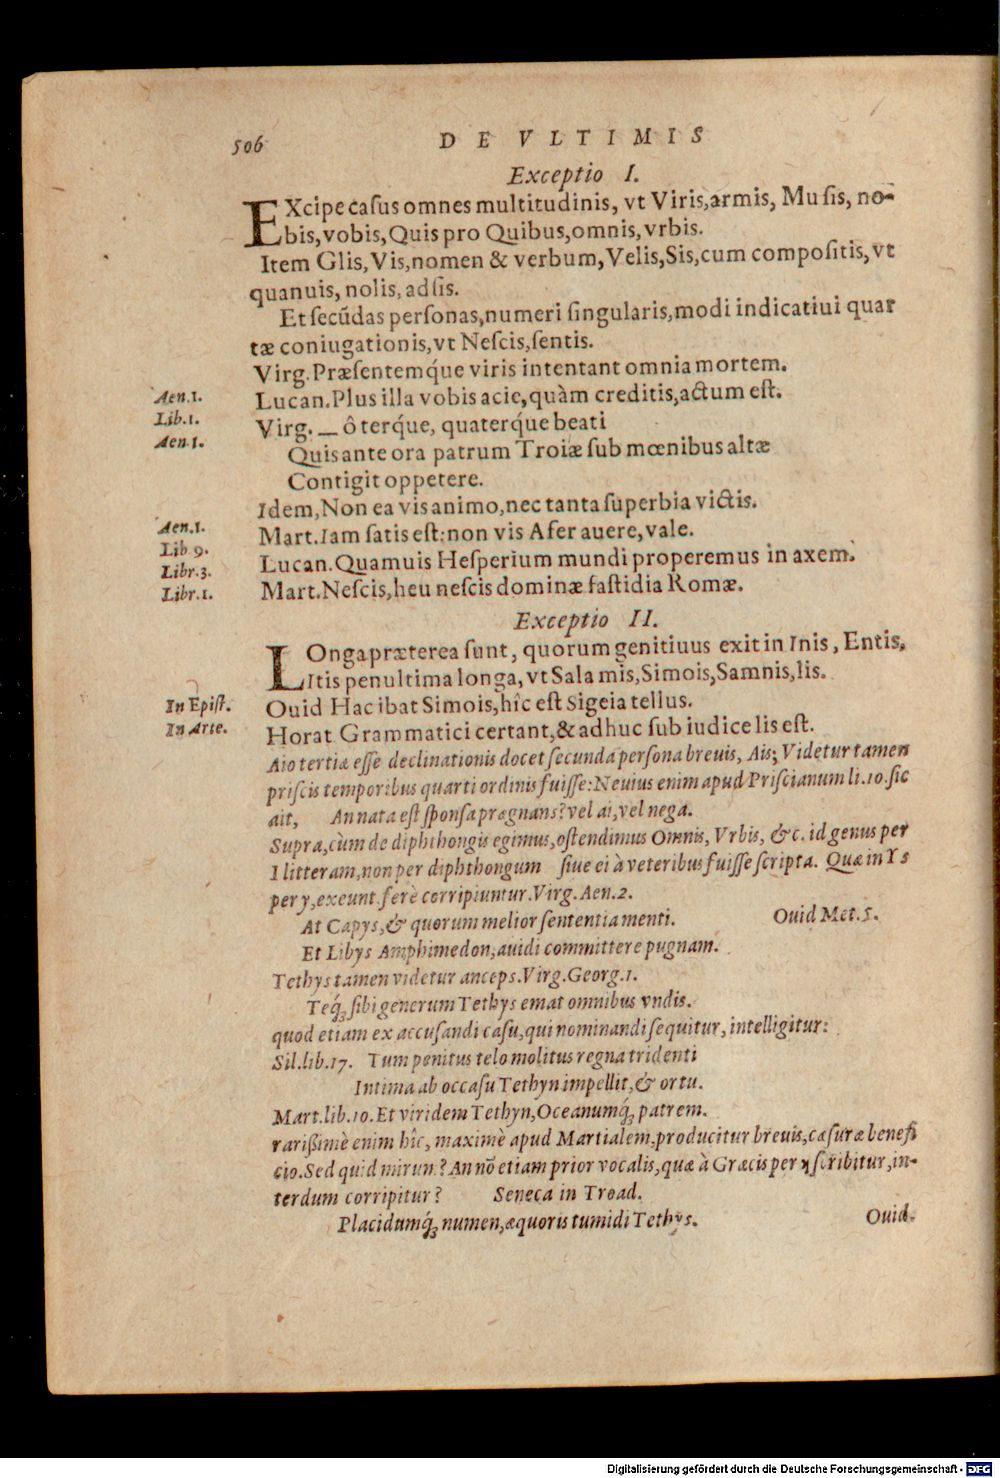 506 DE VLTIMIS
Exceptio I.
EXcipe casus omnes multitudinis, vt Viris, armis, Musis, no-
bis, vobis, Quis pro Quibus, omnis, vrbis.
Item Glis, Vis, nomen & verbum, Velis, Sis, cum compositis, vt
quanuis, nolis, adsis.
Et secūdas personas, numeri singularis, modi indicatiui quar
tæ coniugationis, vt Nescis, sentis.
Virg. Præsentemq́ue viris intentant omnia mortem.
Aen. 1. Lucan. Plus illa vobis acie, quàm creditis, actum est.
Lib. 1. Virg. — ô terq́ue, quaterq́ue beati
Aen. 1. Quis ante ora patrum Troiæ sub mœnibus altæ
Contigit oppetere.
Idem, Non ea vis animo, nec tanta superbia victis.
Aen. 1. Mart. Iam satis est: non vis Afer auere, vale.
Lib 9. Lucan. Quamuis Hesperium mundi properemus in axem.
Libr. 3.
Libr. 1. Mart. Nescis, heu nescis dominæ fastidia Romæ.
Exceptio II.
LOnga præterea sunt, quorum genitiuus exit in Inis, Entis,
Itis penultima longa, vt Salamis, Simois, Samnis, lis.
In Epist. Ouid Hac ibat Simois, hîc est Sigeia tellus.
In Arte. Horat Grammatici certant, & adhuc sub iudice lis est.
Aio tertiæ esse declinationis docet secunda persona breuis, Ais; Videtur tamen
priscis temporibus quarti ordinis fuisse: Neuius enim apud Priscianum li. 10. sic
ait, An nata est sponsa prægnans? vel ai, vel nega.
Supra, cùm de diphthongis egimus, ostendimus Omnis, Vrbis, &c. id genus per
I litteram, non per diphthongum siue ei à veteribus fuisse scripta. Quæ in Ys
per y, exeunt ferè corripiuntur. Virg. Aen. 2.
At Capys, & quorum melior sententia menti. Ouid Met. 5.
Et Libys Amphimedon, auidi committere pugnam.
Tethys tamen videtur anceps. Virg. Georg. 1.
Teq́; sibi generum Tethys emat omnibus vndis.
quod etiam ex accusandi casu, qui nominandi sequitur, intelligitur:
Sil. lib. 17. Tum penitus telo molitus regna tridenti
Intima ab occasu Tethyn impellit, & ortu.
Mart. lib. 10. Et viridem Tethyn, Oceanumq́; patrem.
rarißimè enim hîc, maximè apud Martialem, producitur breuis, cæsuræ benefi
cio. Sed quid mirum? An nō etiam prior vocalis, quæ à Græcis per η scribitur, in-
terdum corripitur? Seneca in Troad.
Placidumq́; numen, æquoris tumidi Tethys. Ouid.
Digitalisierung gefördert durch die Deutsche Forschungsgemeinschaft - DFG